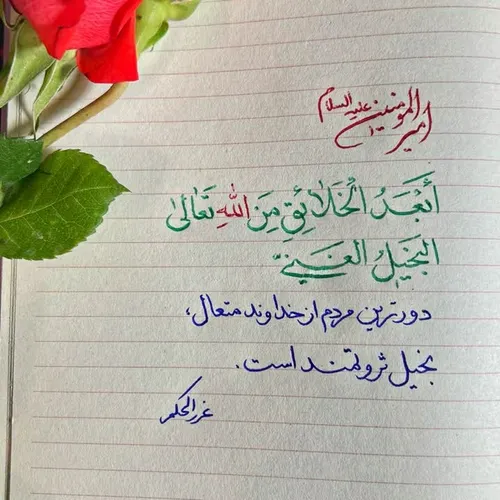 امیرالمومنین علیه السلام
أَبْعَدُ الْخَلائِقِ مِنَ اللهِ تَعَالىٰ
البَخیلُ الغَنِيّ
دورترین مردم از خداوند متعال،
بخیل ثروتمند است.
غررالحکم